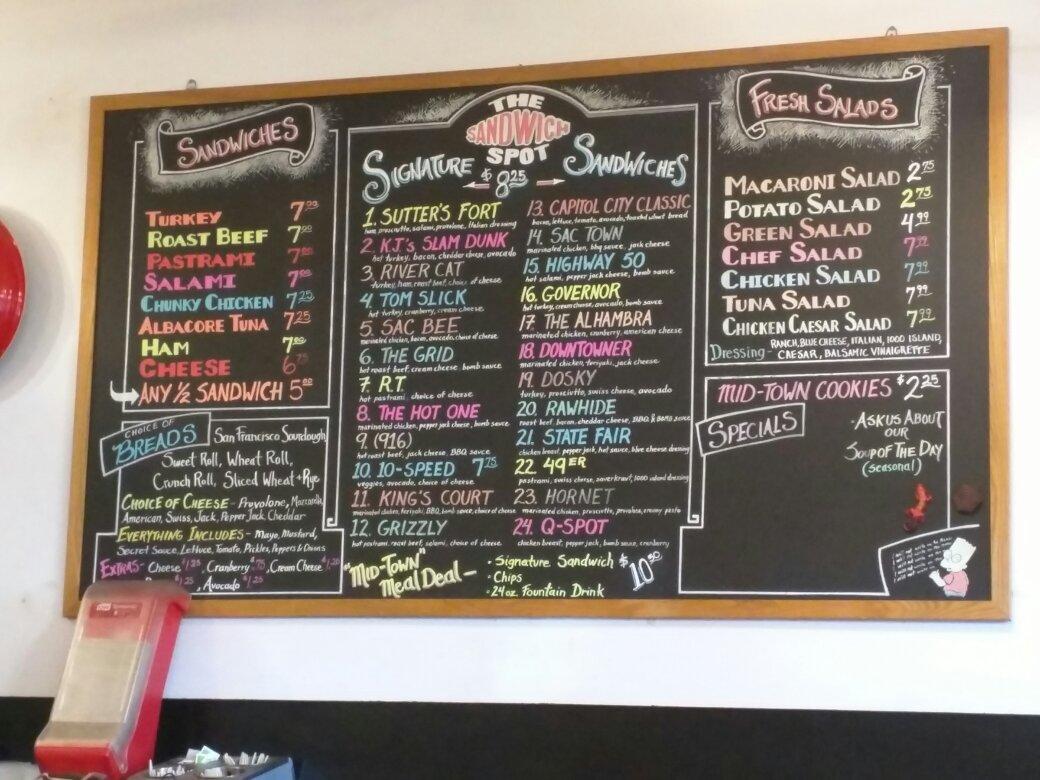 SANDWICHES
TURKEY
ROAST BEEF 7.00
PASTRAMI 7.00
SALAMI 7.00
CHUNKY CHICKEN 7.25
ALBACORE TUNA 7.25
HAM 7.00
CHEESE 6.75
ANY 1/2 SANDWICH 5.00
CHOICE OF
BREADS
San Francisco Sourdough
Sweet Roll, Wheat Roll,
Crunch Roll, Sliced Wheat + Rye
CHOICE OF CHEESE - Provolone, Mozzarella,
American, Swiss, Jack, Pepper Jack, Cheddar
EVERYTHING INCLUDES - Mayo, Mustard,
Secret Sauce, Lettuce, Tomato, Pickles, Peppers & Onions
EXTRAS - Cheese Cranberry .75, Cream Cheese
$1.25, Avocado $1.25
THE
SANDWICH
SPOT
SIGNATURE SANDWICHES
$8.25
1. SUTTER'S FORT
ham, prosciutto, salami, provolone, Italian dressing
2. KJ's SLAM DUNK
hot turkey, bacon, cheddar cheese, avocado
3. RIVER CAT
turkey, ham, roast beef, choice of cheese
4. TOM SLICK
hot turkey, cranberry, cream cheese
5. SAC BEE
marinated chicken, bacon, avocado, choice of cheese
6. THE GRID
hot roast beef, cream cheese, bomb sauce
7. R.T.
hot pastrami, choice of cheese
8. THE HOT ONE
marinated chicken, pepper jack cheese, bomb sauce
9. (916)
hot roast beef, jack cheese, BBQ sauce
10. 10-SPEED 7.75
veggies, avocado, choice of cheese
11. KING'S COURT
marinated chicken, hot pastrami, BBQ, bomb sauce, choice of cheese
12. GRIZZLY
hot pastrami, roast beef, salami, choice of cheese
13. CAPITOL CITY CLASSIC
bacon, lettuce, tomato, avocado, toasted wheat bread
14. SAC TOWN
marinated chicken, bbq sauce, jack cheese
15. HIGHWAY 50
hot salami, pepper jack cheese, bomb sauce
16. GOVERNOR
hot turkey, cream cheese, avocado, bomb sauce
17. THE ALHAMBRA
marinated chicken, cranberry, american cheese
18. DOWNTOWNER
marinated chicken, teriyaki, jack cheese
19. DOSKY
turkey, prosciutto, swiss cheese, avocado
20. RAWHIDE
roast beef, bacon, cheddar cheese, BBQ & bomb sauce
21. STATE FAIR
chicken breast, pepper jack, hot sauce, blue cheese dressing
22. 49ER
pastrami, swiss cheese, saverkraut, 1000 island dressing
23. HORNET
marinated chicken, prosciutto, provolone, creamy pesto
24. Q-SPOT
chicken breast, pepper jack, bomb sauce, cranberry
"MID-TOWN"
Meal Deal -
• Signature Sandwich
• Chips
• 24oz. Fountain Drink
$10.50
FRESH SALADS
MACARONI SALAD 2.75
POTATO SALAD 2.75
GREEN SALAD 4.99
CHEF SALAD
CHICKEN SALAD 7.99
TUNA SALAD 7.99
CHICKEN CAESAR SALAD 7.99
Dressing - RANCH, BLUE CHEESE, ITALIAN, 1000 ISLAND,
CAESAR, BALSAMIC VINAIGRETTE
MID-TOWN COOKIES $2.25
SPECIALS
• ASK US ABOUT
OUR
SOUP OF THE DAY
(seasonal)